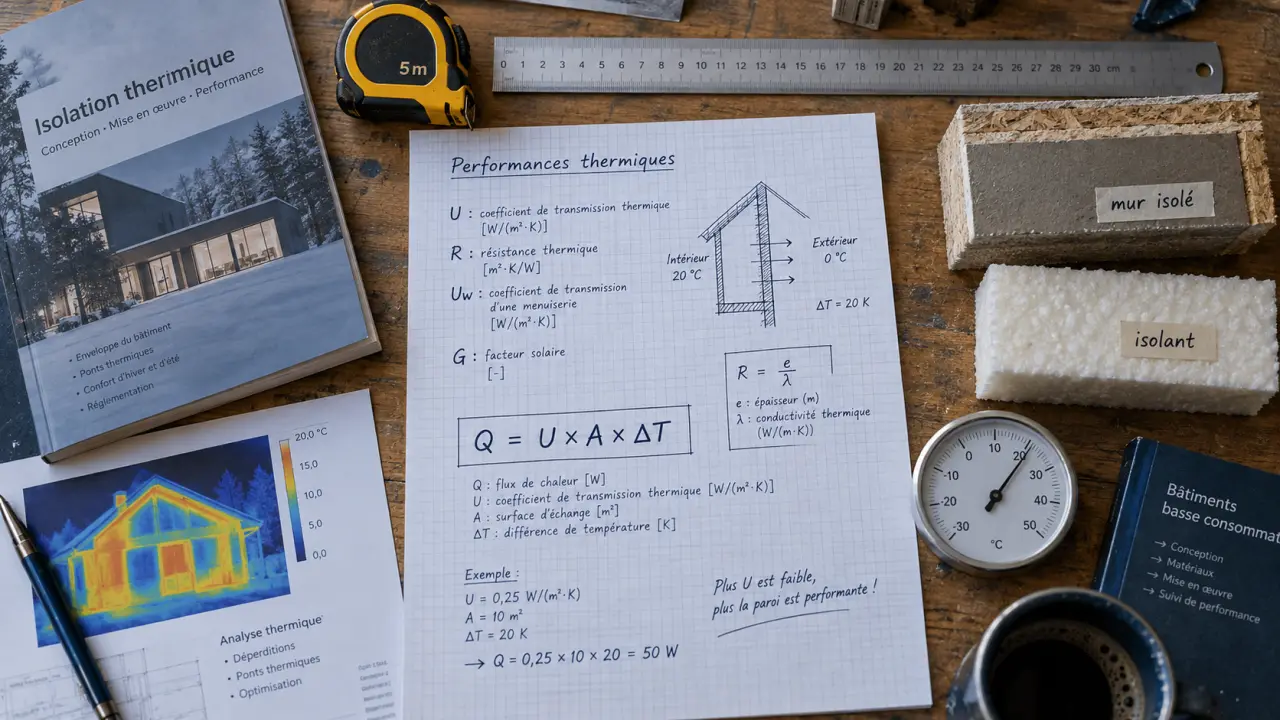 Isolation therimique
Conception • Mise en œuvre • Performance
• Enveloppe du bâtiment
• Ponts thermiques
• Confort d'hiver et d'été
• Réglementation
5m
0 1 2 3 4 5 6 7 8 9 10 11 12 13 14 15 16 17 18 19 20 21 22 23 24 25 26 27 28 29 30 cm
Performances thermiques
U : coefficient de transmission thermique
[W/(m²·K)]
R : résistance thermique
[m²·K/W]
Uw : coefficient de transmission
d'une menuiserie
[W/(m²·K)]
G : facteur solaire
[-]
Intérieur
20 °C
Extérieur
0 °C
ΔT = 20 K
R = e/λ
e : épaisseur (m)
λ : conductivité thermique
(W/(m·K))
Q = U × A × ΔT
Q : flux de chaleur [W]
U : coefficient de transmission thermique [W/(m²·K)]
A : surface d'échange [m²]
ΔT : différence de température [K]
Exemple :
U = 0,25 W/(m²·K)
A = 10 m²
ΔT = 20 K
→ Q = 0,25 × 10 × 20 = 50 W
Plus U est faible,
plus la paroi est performante !
mur isolé
isolant
-30 -20 -10 0 10 20 30 40 50
°C
Bâtiments
basse consommat
→ Conception
→ Matériaux
→ Mise en œuvre
→ Suivi de performance
20,0 °C
15,0
10,0
5,0
0,0
Analyse thermique
• Déperditions
• Ponts thermiques
• Optimisation